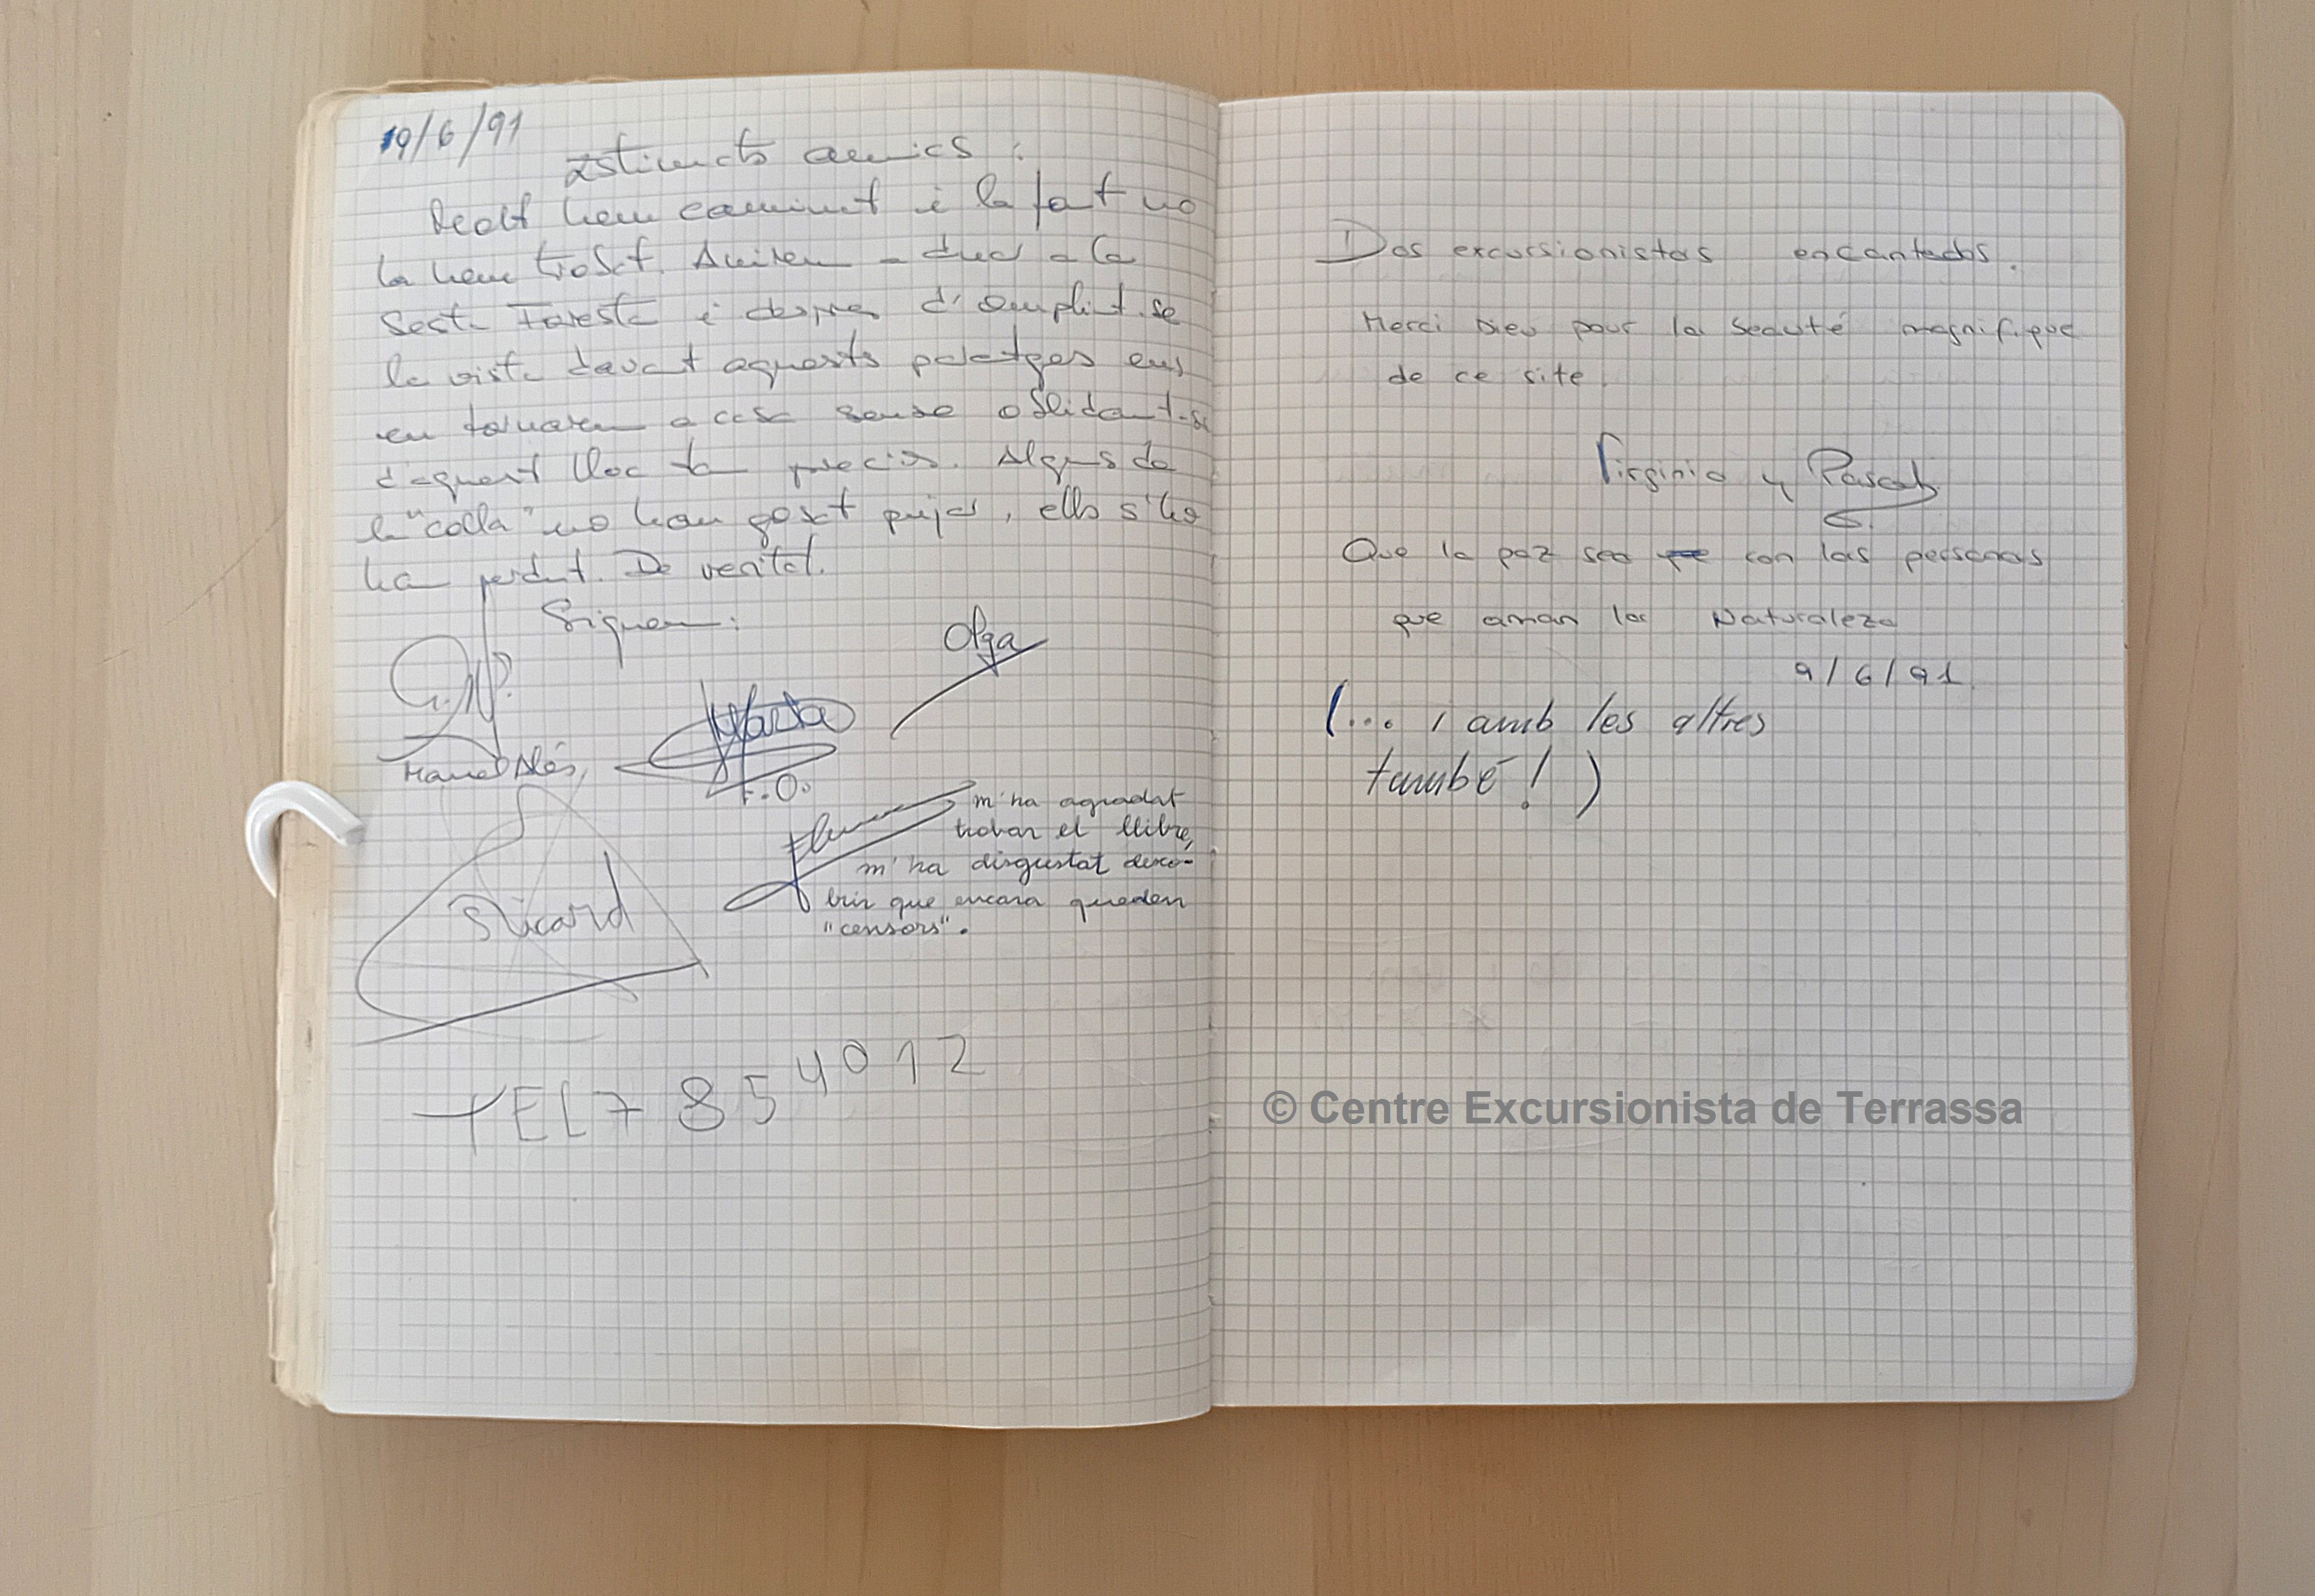 19/6/91
Estimats amics :
Molt hem caminat i la font no
la hem trobat. Anirem a dinar a la
Festa i despres d'omplint-se
la vista davant aquests paisatges ens
en tornarem a casa sense oblidant-se
d'aquest lloc tan precios. Alguns de
la "colla" no han gosat pujar, ells s'ho
han perdut. De veritat.
Signem:
Olga
Manel
Marta
F.O.
m'ha agradat
trobar el llibre,
m'ha disgustat desco-
brir que encara queden
"censors".
Ricard
TEL 7854012
Dos excursionistas encantados.
Merci Dieu pour la beauté magnifique
de ce site.
Virginia y Pascal
Que la paz sea que con las personas
que aman la Naturaleza
9/6/91.
(... i amb les altres
també! )
© Centre Excursionista de Terrassa